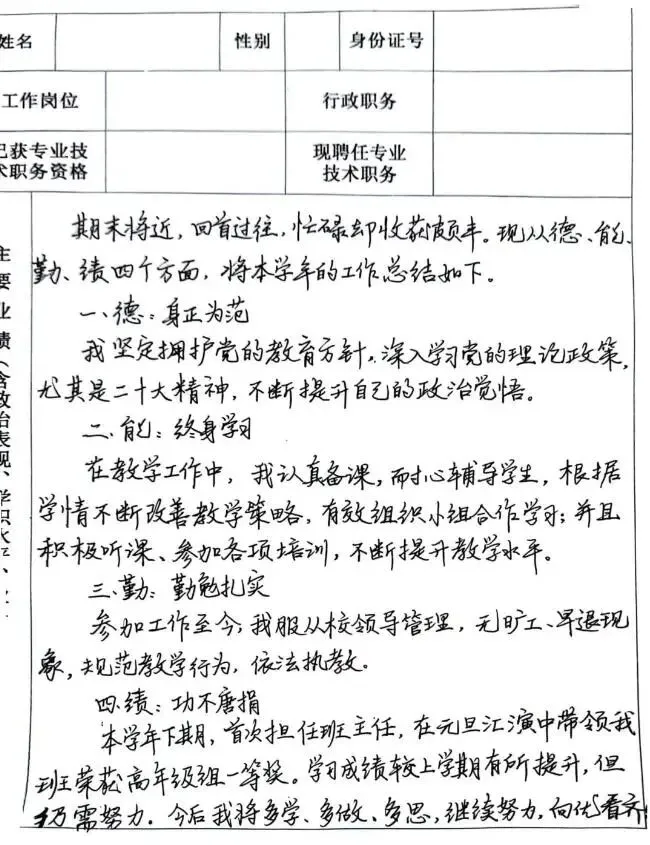 姓名 性别 身份证号
工作岗位 行政职务
已获专业技
术职务资格
现聘任专业
技术职务
主要业绩（含政治表现、学识水平、
期末将近，回首过往，忙碌却收获颇丰。现从德、能、
勤、绩四个方面，将本学年的工作总结如下。
一、德：身正为范
我坚定拥护党的教育方针。深入学习党的理论政策，
尤其是二十大精神，不断提升自己的政治觉悟。
二、能：终身学习
在教学工作中，我认真备课，耐心辅导学生，根据
学情不断改善教学策略，有效组织小组合作学习；并且
积极听课、参加各项培训，不断提升教学水平。
三、勤：勤勉扎实
参加工作至今，我服从校领导管理，无旷工、早退现
象，规范教学行为，依法执教。
四、绩：功不唐捐
本学年下期，首次担任班主任，在元旦汇演中带领我
班荣获高年级组一等奖。学习成绩较上学期有所提升，但
仍需努力．今后我将多学、多做、多思，继续努力，向优秀看齐